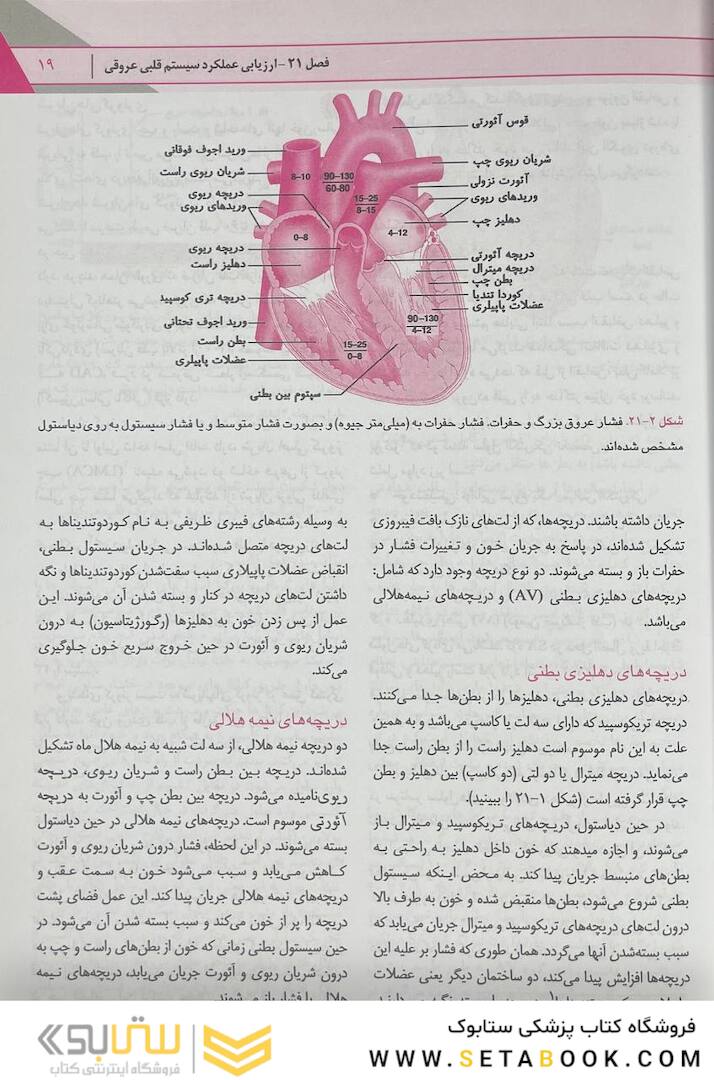 فصل ۲۱ - ارزیابی عملکرد سیستم قلبی عروقی | ۱۹
قوس آئورتی
شریان ریوی چپ
آئورت نزولی
وریدهای ریوی
دهلیز چپ
دریچه آئورتی
دریچه میترال
بطن چپ
کوردا تندیا
عضلات پاپیلری
ورید اجوف فوقانی
شریان ریوی راست
دریچه ریوی
وریدهای ریوی
دریچه ریوی
دهلیز راست
دریچه تری کوسپید
ورید اجوف تحتانی
بطن راست
عضلات پاپیلری
سپتوم بین بطنی
8–10
90–130
60-80
15–25
8–15
0–8
4–12
90–130
4–12
15–25
0–8
شکل ۲-۲۱. فشار عروق بزرگ و حفرات. فشار حفرات به (میلی‌متر جیوه) و بصورت فشار متوسط و یا فشار سیستول به روی دیاستول
مشخص شده‌اند.
جریان داشته باشند. دریچه‌ها، که از لت‌های نازک بافت فیبروزی
تشکیل شده‌اند، در پاسخ به جریان خون و تغییرات فشار در
حفرات باز و بسته می‌شوند. دو نوع دریچه وجود دارد که شامل:
دریچه‌های دهلیزی بطنی (AV) و دریچه‌های نیمه‌هلالی
می‌باشد.
دریچه‌های دهلیزی بطنی
دریچه‌های دهلیزی بطنی، دهلیزها را از بطن‌ها جدا می‌کنند.
دریچه تریکوسپید که دارای سه لت یا کاسپ می‌باشد و به همین
علت به این نام موسوم است دهلیز راست را از بطن راست جدا
می‌نماید. دریچه میترال یا دو لتی (دو کاسپ) بین دهلیز و بطن
چپ قرار گرفته است (شکل ۱-۲۱ را ببینید).
در حین دیاستول، دریچه‌های تریکوسپید و میترال باز
می‌شوند، و اجازه میدهند که خون داخل دهلیز به راحتی به
بطن‌های منبسط جریان پیدا کند. به محض اینکه سیستول
بطنی شروع می‌شود، بطن‌ها منقبض شده و خون به طرف بالا
درون لت‌های دریچه‌های تریکوسپید و میترال جریان می‌یابد که
سبب بسته‌شدن آنها می‌گردد. همان طوری که فشار بر علیه این
دریچه‌ها افزایش پیدا می‌کند، دو ساختمان دیگر یعنی عضلات
به وسیله رشته‌های فیبری ظریفی به نام کوردوتندیناها به
لت‌های دریچه متصل شده‌اند. در جریان سیستول بطنی،
انقباض عضلات پاپیلاری سبب سفت‌شدن کوردوتندیناها و نگه
داشتن لت‌های دریچه در کنار و بسته شدن آن می‌شوند. این
عمل از پس زدن خون به دهلیزها (رگورژیتاسیون) به درون
شریان ریوی و آئورت در حین خروج سریع خون جلوگیری
می‌کند.
دریچه‌های نیمه هلالی
دو دریچه نیمه هلالی، از سه لت شبیه به نیمه هلال ماه تشکیل
شده‌اند. دریچه بین بطن راست و شریان ریوی، دریچه
ریوی‌نامیده می‌شود. دریچه بین بطن چپ و آئورت به دریچه
آئورتی موسوم است. دریچه‌های نیمه هلالی در حین دیاستول
بسته می‌شوند. در این لحظه، فشار درون شریان ریوی و آئورت
کاهش می‌یابد و سبب می‌شود خون به سمت عقب و
دریچه‌های نیمه هلالی جریان پیدا کند. این عمل فضای پشت
دریچه را پر از خون می‌کند و سبب بسته شدن آن می‌شود. در
حین سیستول بطنی زمانی که خون از بطن‌های راست و چپ به
درون شریان ریوی و آئورت جریان می‌یابد، دریچه‌های نیمه
هلالی با فشار باز می‌شوند.
فروشگاه کتاب پزشکی ستابوک
WWW.SETABOOK.COM
ستابوک
فروشگاه اینترنتی کتاب